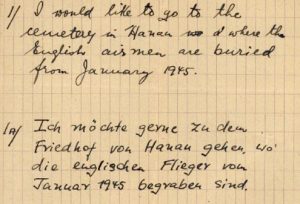 1/ I would like to go to the
cemetery in Hanau where the
English airmen are buried
from January 1945.
1a/ Ich möchte gerne zu dem
Friedhof von Hanau gehen, wo
die englischen Flieger vom
Januar 1945 begraben sind.